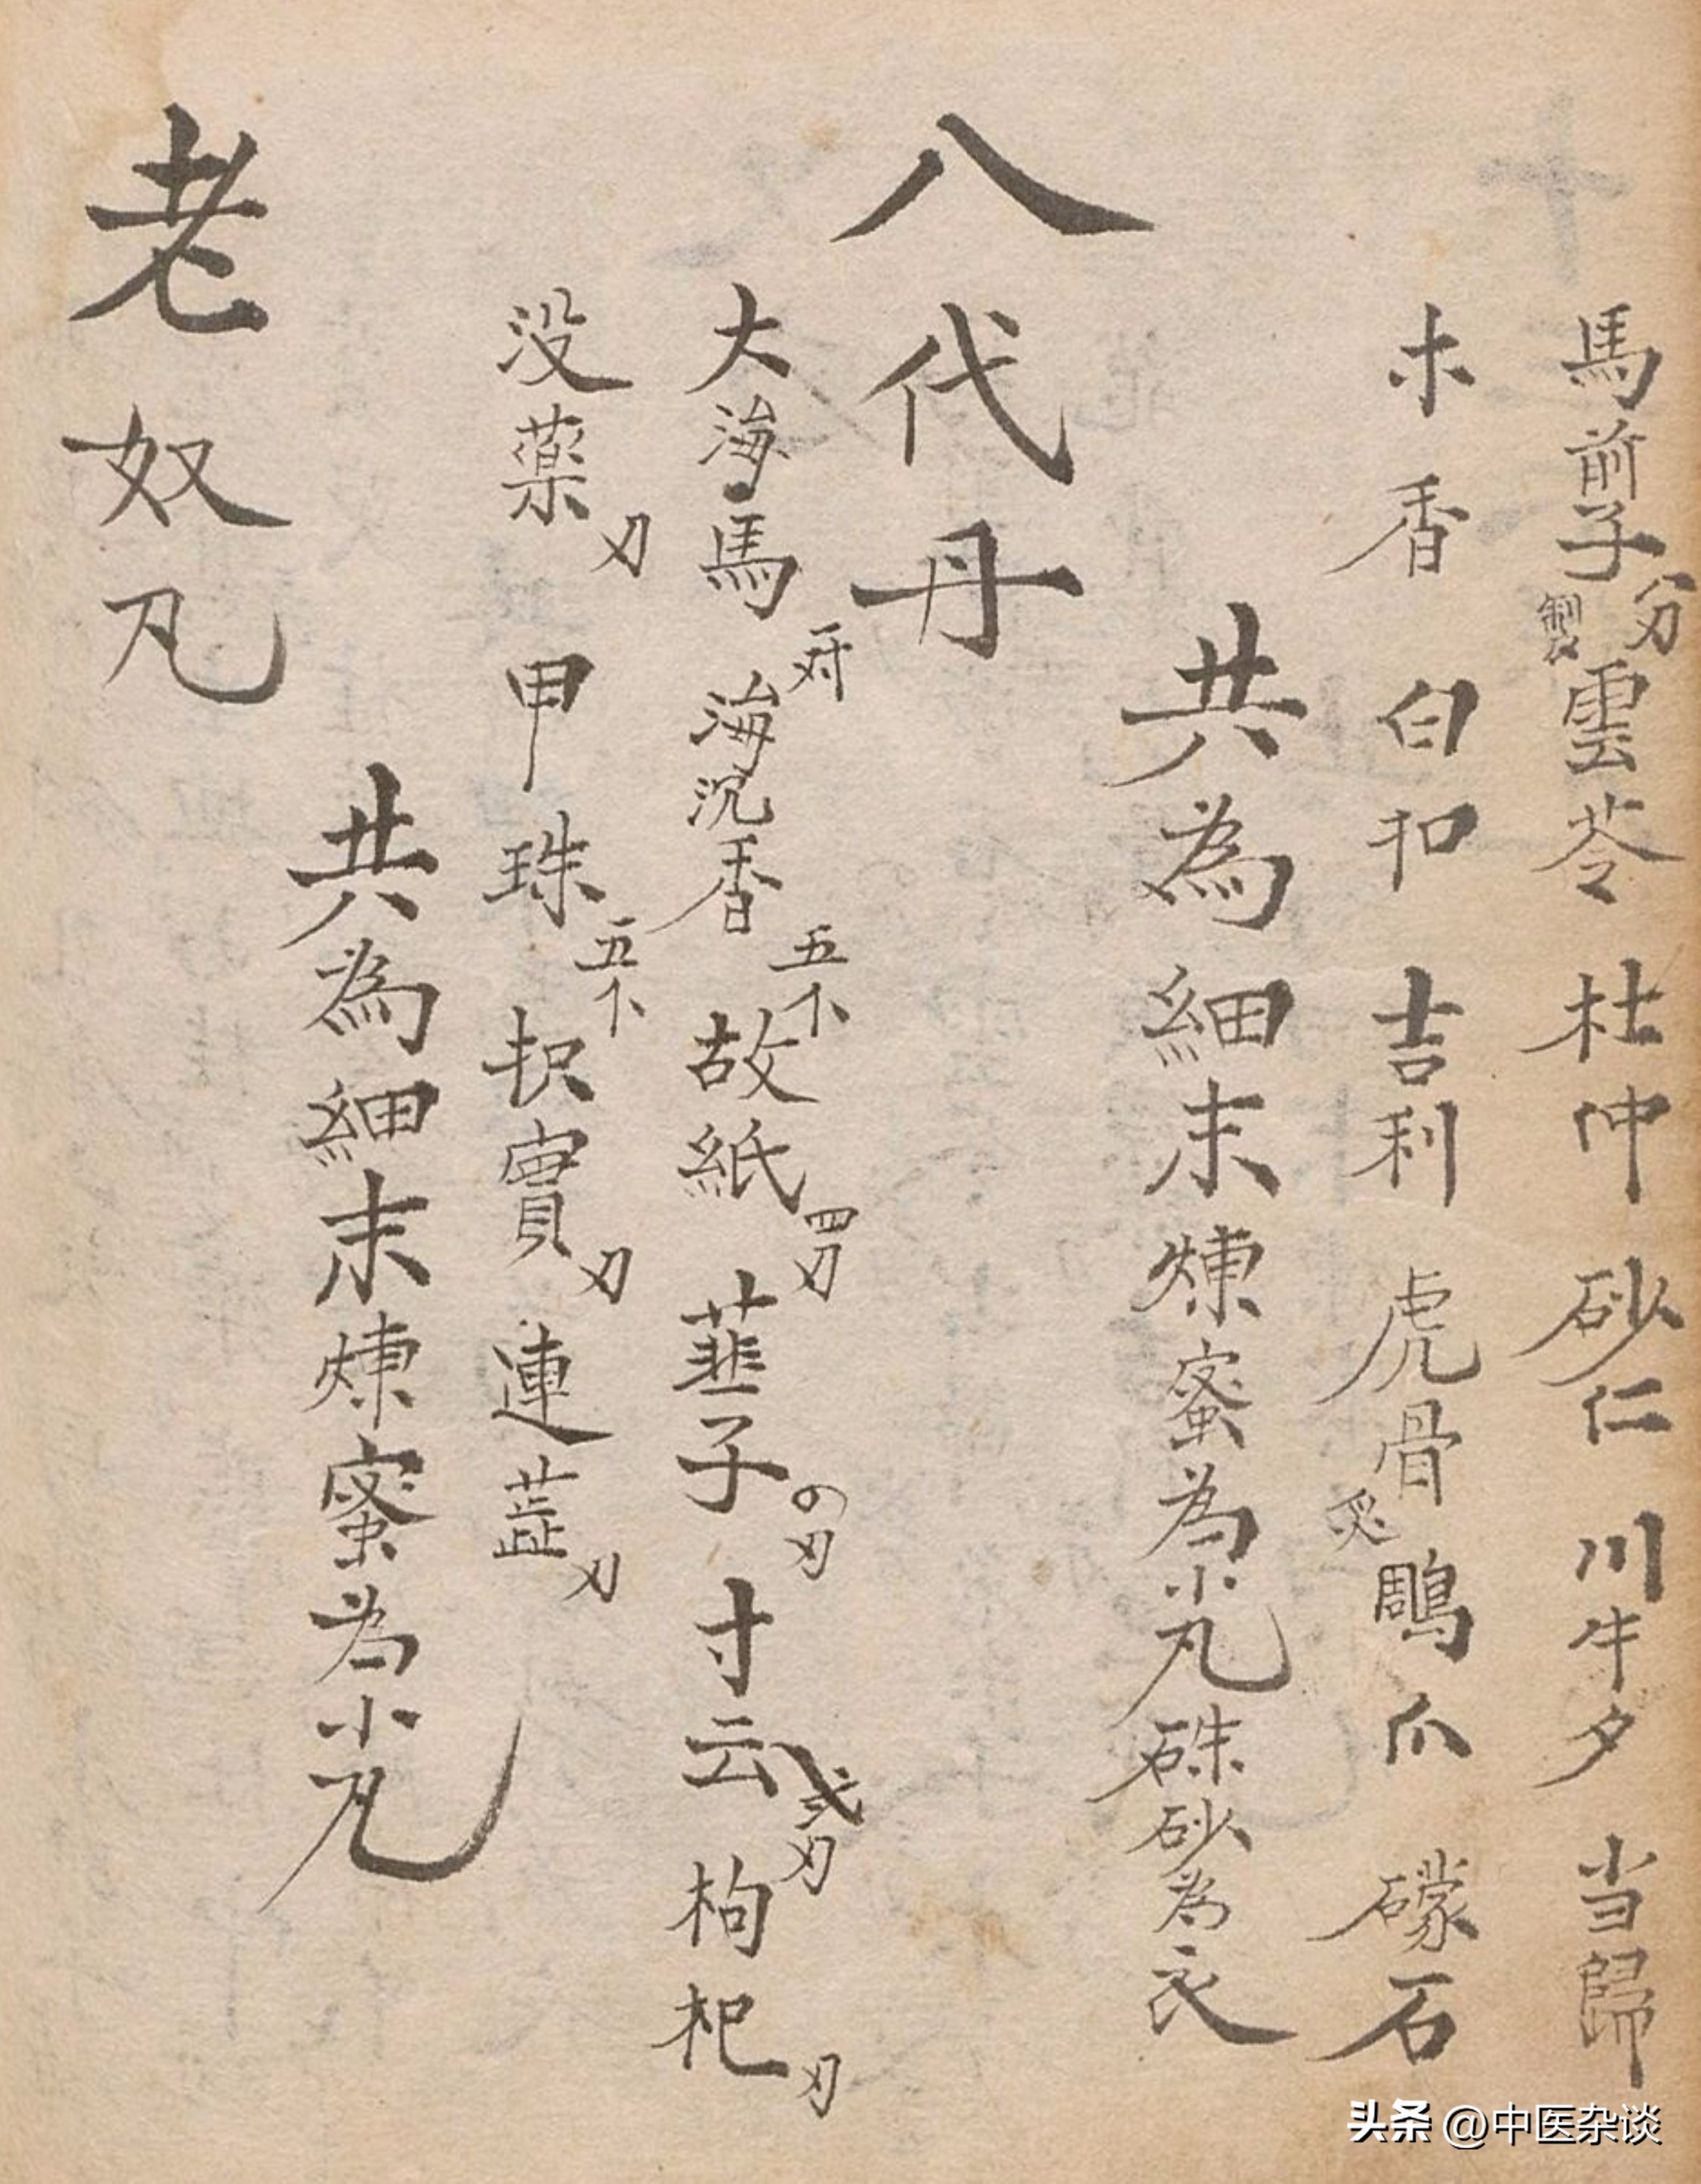 馬前子 製 雲苓 杜仲 砂仁 川牛夕 当歸
木香 白扣 吉利 虎骨 炙 鵰爪 礞石
共為細末煉蜜為小丸硃砂為衣
八代丹
大海馬 海沉香 五 故紙 四刃 韮子 刃 寸云 弍刃 枸杞 刃
没藥 刃 甲珠 五 枳實 刃 連 刃
共為細末煉蜜為小丸
老奴丸
头条 @中医杂谈